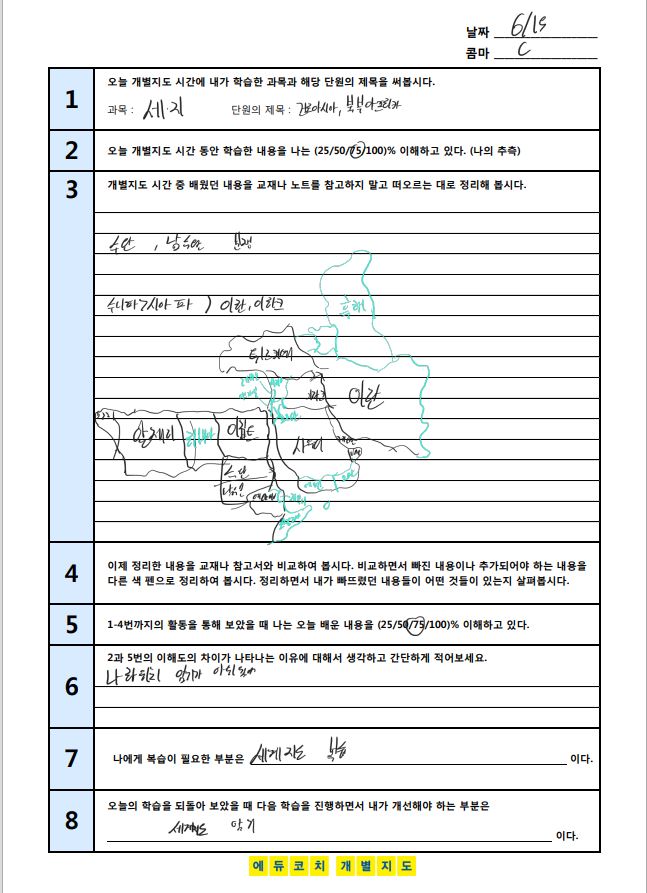 날짜 6/19
콤마 C
1
오늘 개별지도 시간에 내가 학습한 과목과 해당 단원의 제목을 써봅시다.
과목 : 세지 단원의 제목 : 건조아시아, 북부아프리카
2
오늘 개별지도 시간 동안 학습한 내용을 나는 (25/50/75/100)% 이해하고 있다. (나의 추측)
3
개별지도 시간 중 배웠던 내용을 교재나 노트를 참고하지 말고 떠오르는 대로 정리해 봅시다.
수단 , 남수단 분쟁
수니파 시아파 ) 이란, 이라크
흑해
튀르키예
이라크
이란
알제리
리비아
이집트
사우디
수단
남수단
4
이제 정리한 내용을 교재나 참고서와 비교하여 봅시다. 비교하면서 빠진 내용이나 추가되어야 하는 내용을
다른 색 펜으로 정리하여 봅시다. 정리하면서 내가 빠뜨렸던 내용들이 어떤 것들이 있는지 살펴봅시다.
5
1-4번까지의 활동을 통해 보았을 때 나는 오늘 배운 내용을 (25/50/75/100)% 이해하고 있다.
6
2과 5번의 이해도의 차이가 나타나는 이유에 대해서 생각하고 간단하게 적어보세요.
나라 위치 암기가
7
나에게 복습이 필요한 부분은 세계지도 복습 이다.
8
오늘의 학습을 되돌아 보았을 때 다음 학습을 진행하면서 내가 개선해야 하는 부분은
세계지도 암기 이다.
에듀코치 개별지도